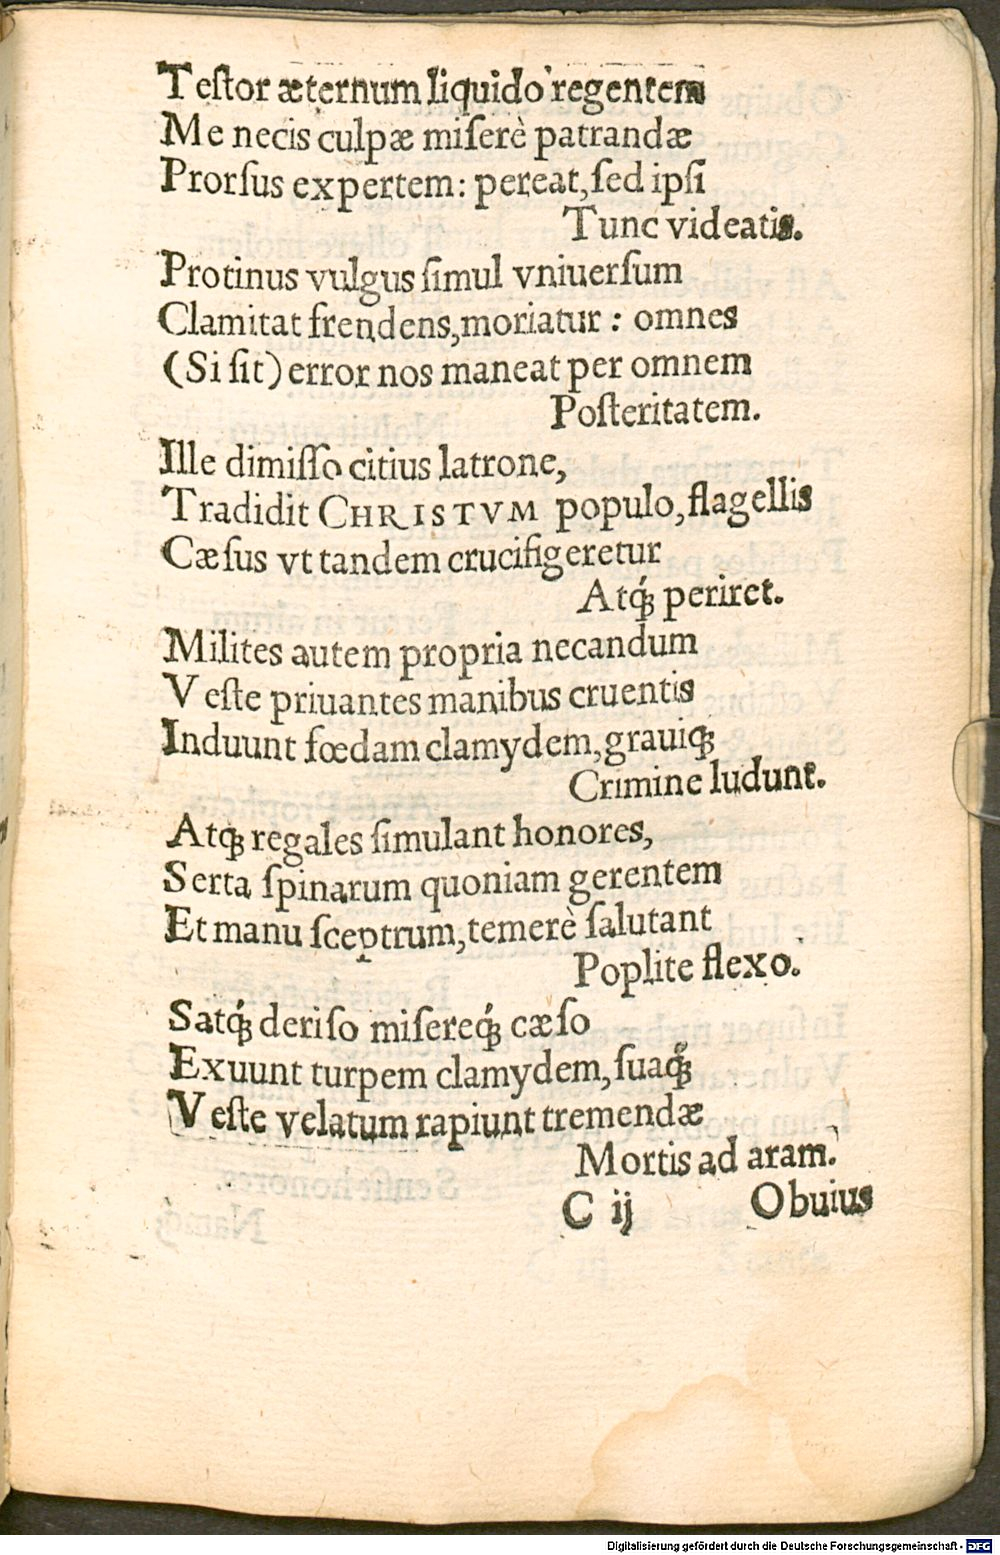 Teſtor æternum liquidò regentem
Me necis culpæ miſerè patrandæ
Prorſus expertem: pereat, ſed ipſi
Tunc videatis.
Protinus vulgus ſimul vniuerſum
Clamitat frendens, moriatur: omnes
(Si ſit) error nos maneat per omnem
Poſteritatem.
Ille dimiſſo citius latrone,
Tradidit CHRISTVM populo, flagellis
Cæſus vt tandem crucifigeretur
Atq́ꝫ periret.
Milites autem propria necandum
Veſte priuantes manibus cruentis
Induunt fœdam clamydem, grauiq́ꝫ
Crimine ludunt.
Atqꝫ regales ſimulant honores,
Serta ſpinarum quoniam gerentem
Et manu ſceptrum, temerè ſalutant
Poplite flexo.
Satq́ꝫ deriſo miſereq́ꝫ cæſo
Exuunt turpem clamydem, ſuaq́ꝫ
Veſte velatum rapiunt tremendæ
Mortis ad aram.
C ij Obuius
Digitalisierung gefördert durch die Deutsche Forschungsgemeinschaft - DFG